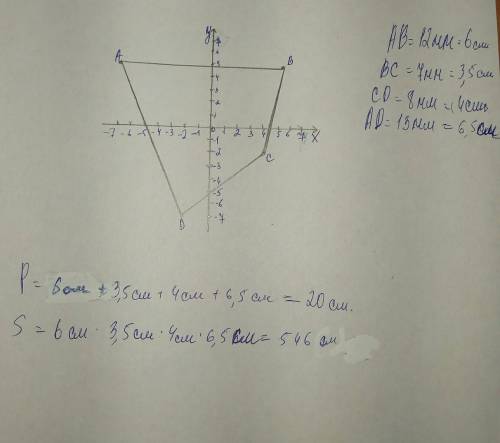 AB=12мм=6см
BC=7мм=3,5см
CD=8мм=4см
AD=13мм=6,5см
y
A
B
5
4
3
2
1
-7 -6 -5 -4 -3 -2 -1 0 1 2 3 4 5 6 7 X
-1
-2
C
-3
-4
-5
-6
-7
D
P=6см+3,5см+4см+6,5см=20см.
S=6см·3,5см·4см·6,5см=546см